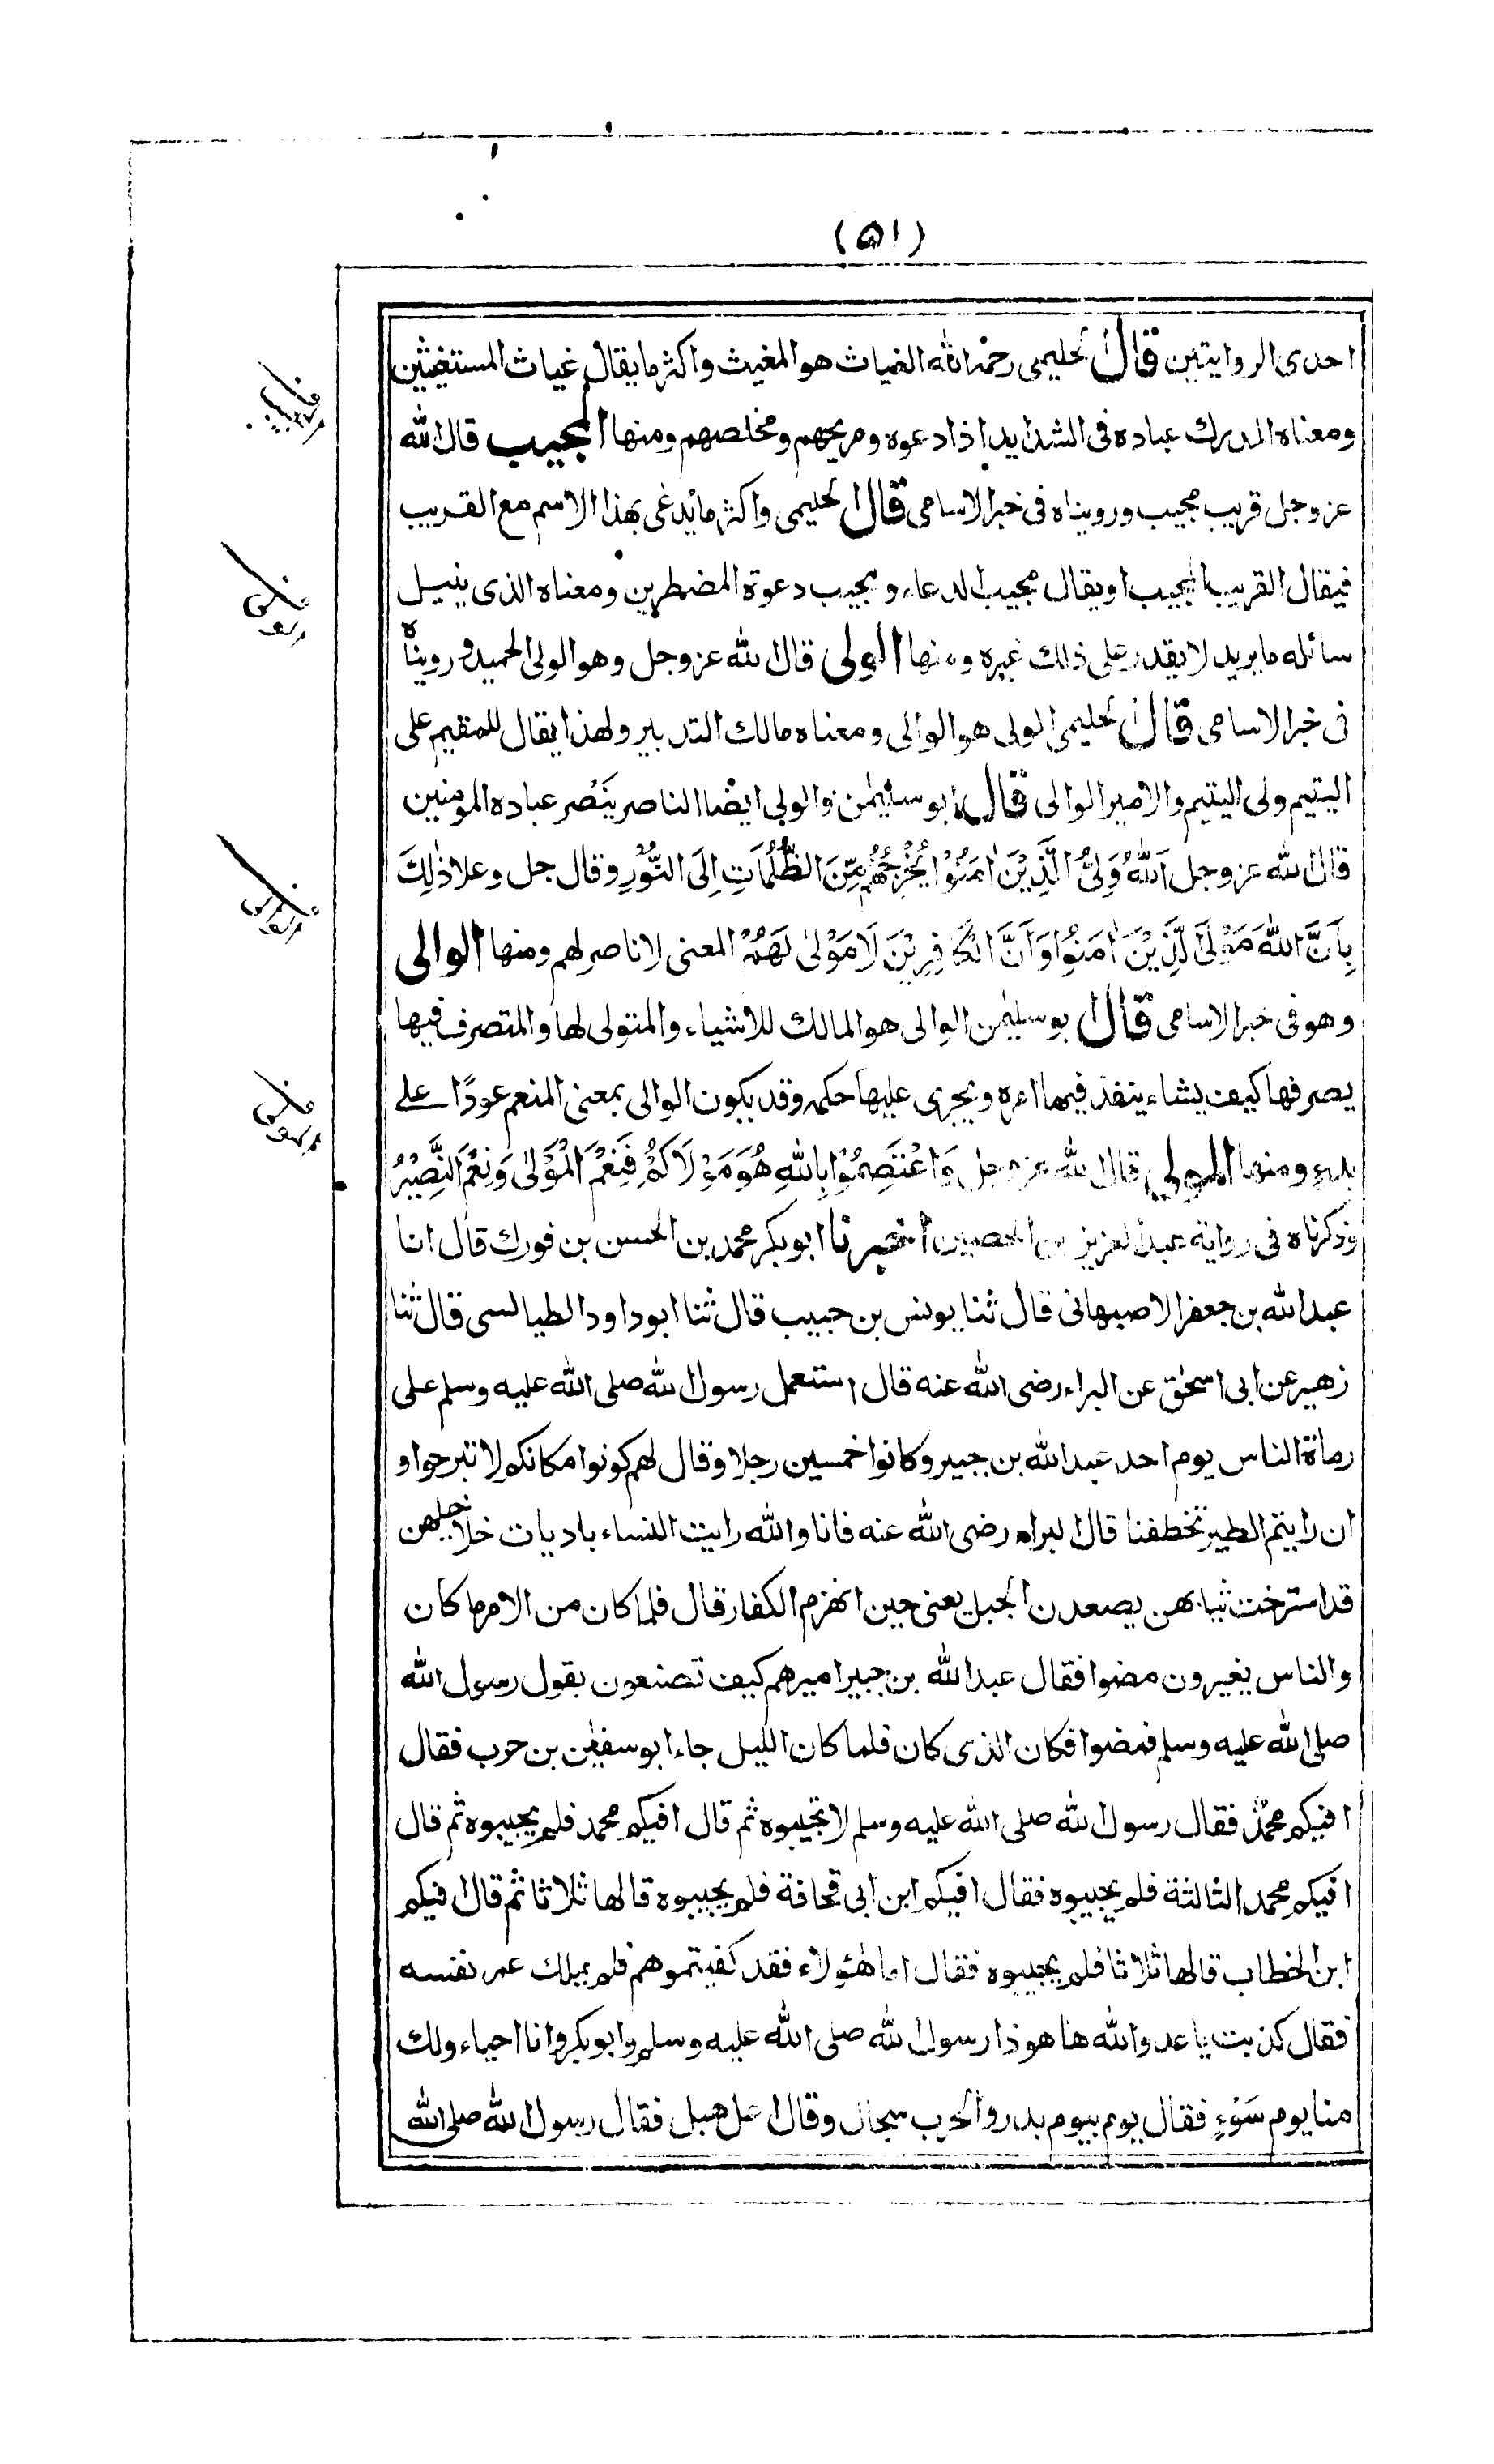 (٥١)
احدى الروايتين قال الحليمى رحمه الله الغياث هو المغيث واكثر ما يقال غياث المستغيثين
ومعناه المدرك عباده فى الشدايد اذا دعوه ومريحهم ومخلصهم ومنها المجيب قال الله
عز وجل قريب مجيب ورويناه فى خبر الاسامى قال الحليمى واكثر ما يدعى بهذا الاسم مع القريب
فيقال القريب المجيب او يقال مجيب الدعاء ومجيب دعوة المضطرين ومعناه الذى ينيل
سائله ما يريد لا يقدر على ذلك غيره ومنها الولى قال الله عز وجل وهو الولى الحميد ورويناه
فى خبر الاسامى قال الحليمى الولى هو الوالى ومعناه مالك التدبير ولهذا يقال للمقيم على
اليتيم ولى اليتيم والامير الوالى قال ابو سليمٰن والولى ايضا الناصر ينصر عباده المؤمنين
قال الله عز وجل اَللّٰهُ وَلِىُّ الَّذِيْنَ اٰمَنُوْا يُخْرِجُهُمْ مِّنَ الظُّلُمَاتِ اِلَى النُّوْرِ وقال جل وعلا ذٰلِكَ
بِاَنَّ اللّٰهَ مَوْلَى الَّذِيْنَ اٰمَنُوْا وَاَنَّ الْكَافِرِيْنَ لَا مَوْلىٰ لَهُمْ المعنى لا ناصر لهم ومنها الوالى
وهو فى خبر الاسامى قال ابو سليمٰن الوالى هو المالك للاشياء والمتولى لها والمتصرف فيها
يصرفها كيف يشاء ينفذ فيها امره ويجرى عليها حكمه وقد يكون الوالى بمعنى المنعم عودًا على
بدء ومنها المولى قال الله عز وجل وَاعْتَصِمُوْا بِاللّٰهِ هُوَ مَوْلَاكُمْ فَنِعْمَ الْمَوْلىٰ وَنِعْمَ النَّصِيْرُ
وذكرناه فى رواية عبد العزيز بن الحصين اخبرنا ابو بكر محمد بن الحسن بن فورك قال انا
عبد الله بن جعفر الاصبهانى قال ثنا يونس بن حبيب قال ثنا ابو داود الطيالسى قال ثنا
زهير عن ابى اسحٰق عن البراء رضى الله عنه قال استعمل رسول الله صلى الله عليه وسلم على
رماة الناس يوم احد عبد الله بن جبير وكانوا خمسين رجلا وقال لهم كونوا مكانكم لا تبرحوا و
ان رايتم الطير تخطفنا قال البراء رضى الله عنه فانا والله رايت النساء باديات خلاخيلهن
قد استرخت ثيابهن يصعدن الجبل يعنى حين انهزم الكفار قال فلما كان من الامر ما كان
والناس يغيرون مضوا فقال عبد الله بن جبير اميرهم كيف تصنعون بقول رسول الله
صلى الله عليه وسلم فمضوا فكان الذى كان فلما كان الليل جاء ابو سفيٰن بن حرب فقال
افيكم محمدٌ فقال رسول الله صلى الله عليه وسلم لا تجيبوه ثم قال افيكم محمد فلم يجيبوه ثم قال
افيكم محمد الثالثة فلم يجيبوه فقال افيكم ابن ابى قحافة فلم يجيبوه قالها ثلاثا ثم قال افيكم
ابن الخطاب قالها ثلاثا فلم يجيبوه فقال اما هٰؤلاء فقد كفيتموهم فلم يملك عمر نفسه
فقال كذبت يا عدو الله ها هو ذا رسول الله صلى الله عليه وسلم وابو بكر وانا احياء ولك
منا يوم سَوْءٍ فقال يوم بيوم بدر والحرب سجال وقال اعل هبل فقال رسول الله صلى الله
المجيب
الولى
الوالى
المولى